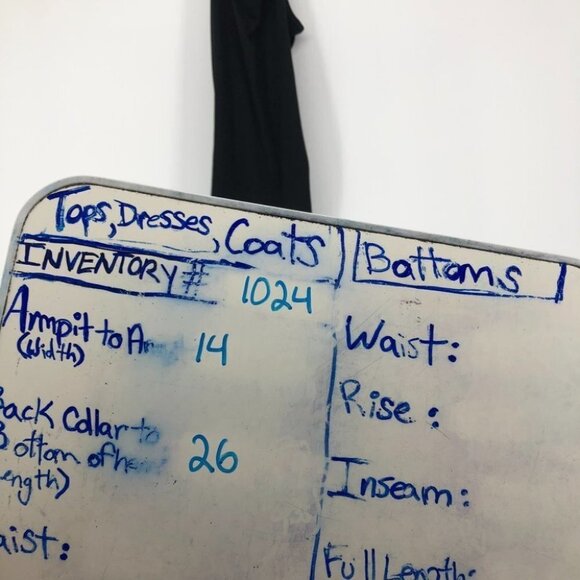 Tops, Dresses, Coats
INVENTORY # 1024
Armpit to Ar
(Width) 14
Back Collar to
Bottom of he 26
ength)
aist:
Bottoms
Waist:
Rise:
Inseam:
Full Length: